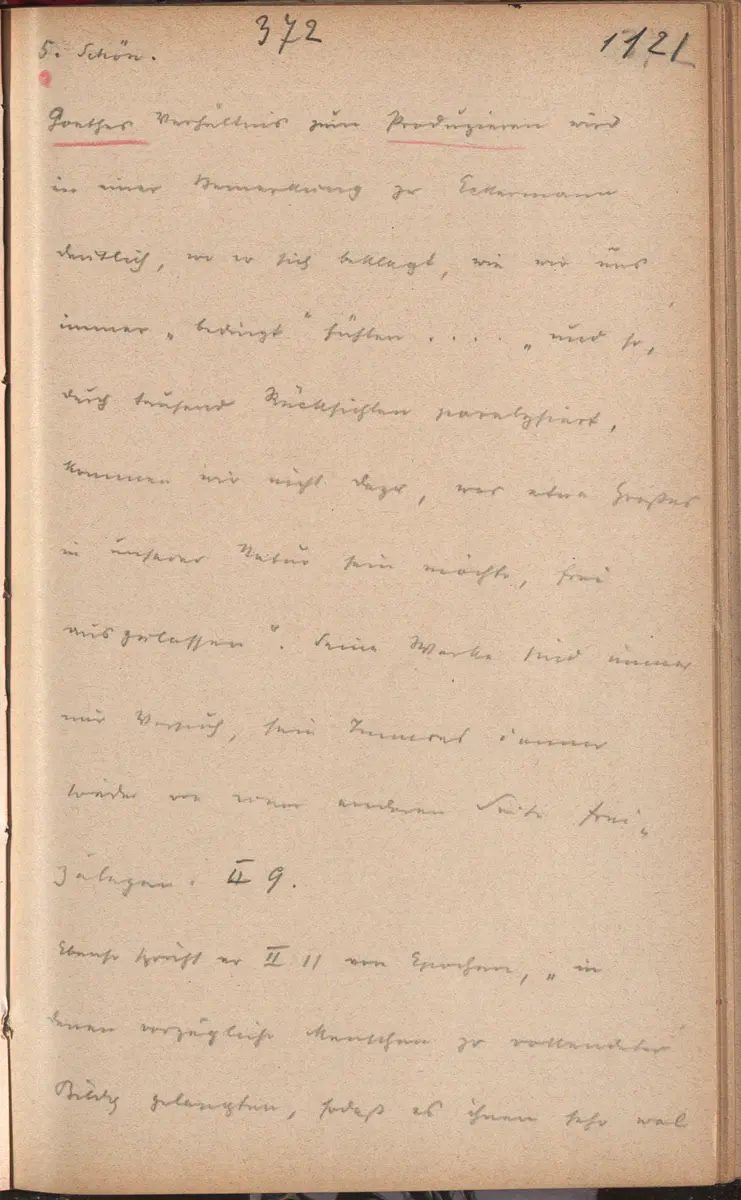 372
1121
5. Schön.
Goethes Verhältnis zum Produzieren wird
in einer Bemerkung zu Eckermann
deutlich, wo er sich beklagt, wie wir uns
immer „bedingt" fühlen .... „und so,
durch tausend Rücksichten paralysiert,
kommen wir nicht dazu, was etwa Großes
in unserer Natur sein möchte, frei
auszulassen". Seine Werke sind immer
nur Versuch, sein Inneres immer
wieder von einer anderen Seite frei„
zulegen. II 9.
Ebenso spricht er II 11 von Epochen, „in
denen vorzügliche Menschen zu vollendeter
Bildg gelangten, sodaß es ihnen sehr wol